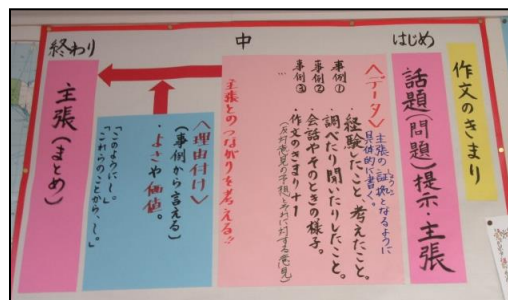 作文のきまり
はじめ
話題(問題)提示・主張
中
〈データ〉
主張の証拠となるように
具体的に書く。
事例①
事例②
事例③
…
・経験したこと、考えたこと。
・調べたり聞いたりしたこと。
・会話やそのときの様子。
・作文のきまり+1
(反対意見の予想とそれに対する意見)
主張とのつながりを考える!!
〈理由付け〉
(事例から言える)
・よさや価値。
「このように、~。」
「これらのことから、~。」
終わり
主張(まとめ)